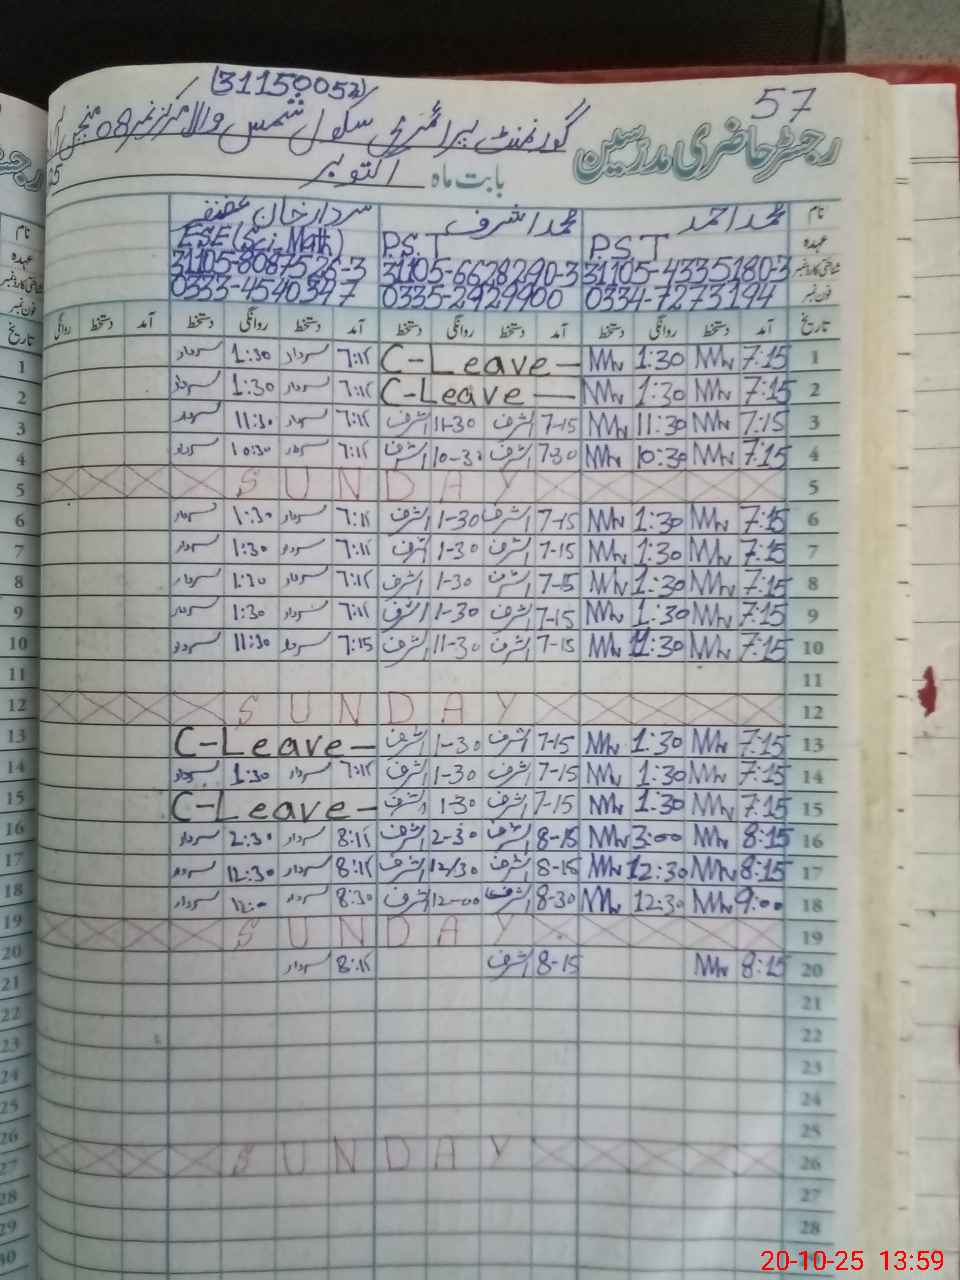 57
(31150052)
رجسٹر حاضری مدرسین
گورنمنٹ پرائمری سکول شمس والا مرکز نمبر 08
بابت ماہ اکتوبر
نام محمد احمد محمد اشرف سردار خان غضنفر
عہدہ P.S.T P.S.T ESE(Sci_Math)
شناختی کارڈ نمبر 31105-4335180-3 31105-6628290-3 31105-8087526-3
فون نمبر 0334-7273194 0335-2929900 0333-4540397
تاریخ آمد دستخط روانگی دستخط آمد دستخط روانگی دستخط آمد دستخط روانگی دستخط آمد دستخط روانگی
1 7:15 1:30 C-Leave- 7:15 سردار 1:30 سردار
2 7:15 1:30 C-Leave- 7:15 سردار 1:30 سردار
3 7:15 11:30 7-15 اشرف 11-30 اشرف 7:15 سردار 11:30 سردار
4 7:15 10:30 7-30 اشرف 10-30 اشرف 7:15 سردار 10:30 سردار
5 SUNDAY
6 7:15 1:30 7-15 اشرف 1-30 اشرف 7:15 سردار 1:30 سردار
7 7:15 1:30 7-15 اشرف 1-30 اشرف 7:15 سردار 1:30 سردار
8 7:15 1:30 7-15 اشرف 1-30 اشرف 7:15 سردار 1:30 سردار
9 7:15 1:30 7-15 اشرف 1-30 اشرف 7:15 سردار 1:30 سردار
10 7:15 11:30 7-15 اشرف 11-30 اشرف 7:15 سردار 11:30 سردار
11
12 SUNDAY
13 7:15 1:30 7-15 اشرف 1-30 اشرف C-Leave-
14 7:15 1:30 7-15 اشرف 1-30 اشرف 7:15 سردار 1:30 سردار
15 7:15 1:30 7-15 اشرف 1-30 اشرف C-Leave-
16 8:15 3:00 8-15 اشرف 2-30 اشرف 8:15 سردار 2:30 سردار
17 8:15 12:30 8-15 اشرف 12/30 اشرف 8:15 سردار 12:30 سردار
18 9:00 12:30 8-30 اشرف 12-00 اشرف 8:30 سردار سردار
19 SUNDAY
20 8:15 8-15 اشرف 8:15 سردار
21
22
23
24
25
26 SUNDAY
27
28
20-10-25 13:59